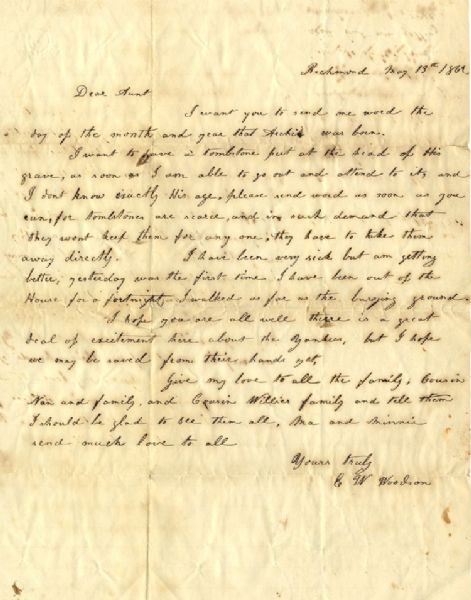 Richmond May 13th 1862
Dear Aunt
I want you to send me word the
day of the month and year that Archie was born.
I want to have a tombstone put at the head of His
grave, as soon as I am able to go out and attend to it, and
I dont know exactly His age, please send word as soon as you
can, for tombstones are scarce, and in such demand that
they wont keep them for any one, they have to take them
away directly. I have been very sick but am getting
better, yesterday was the first time I have been out of the
House for a fortnight, I walked as far as the burying ground
I hope you are all well there is a great
deal of excitement here about the Yankees, but I hope
we may be saved from their hands yet,
Give my love to all the family, Cousin
Nan and family, and Cousin Willies family and tell them
I should be glad to see them all, Ma and Minnie
send much love to all
Yours truly
Woodson